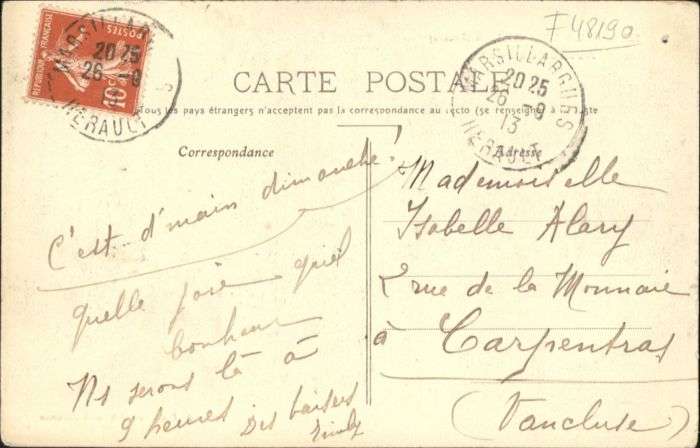 F 48190
MARSILLARGUES
20 25
26 - 9
HÉRAULT
RÉPUBLIQUE FRANÇAISE
POSTES
10
MARSILLARGUES
20 25
26 - 9
13
HÉRAULT
CARTE POSTALE
Tous les pays étrangers n'acceptent pas la correspondance au recto (se renseigner à la poste
Correspondance
Adresse
C'est d'main dimanche!
quelle joie quel
bonheur
Ns serons là à
9 heures Des baisers
Mademoiselle
Isabelle Alary
2 rue de la Monnaie
à Carpentras
(Vaucluse)